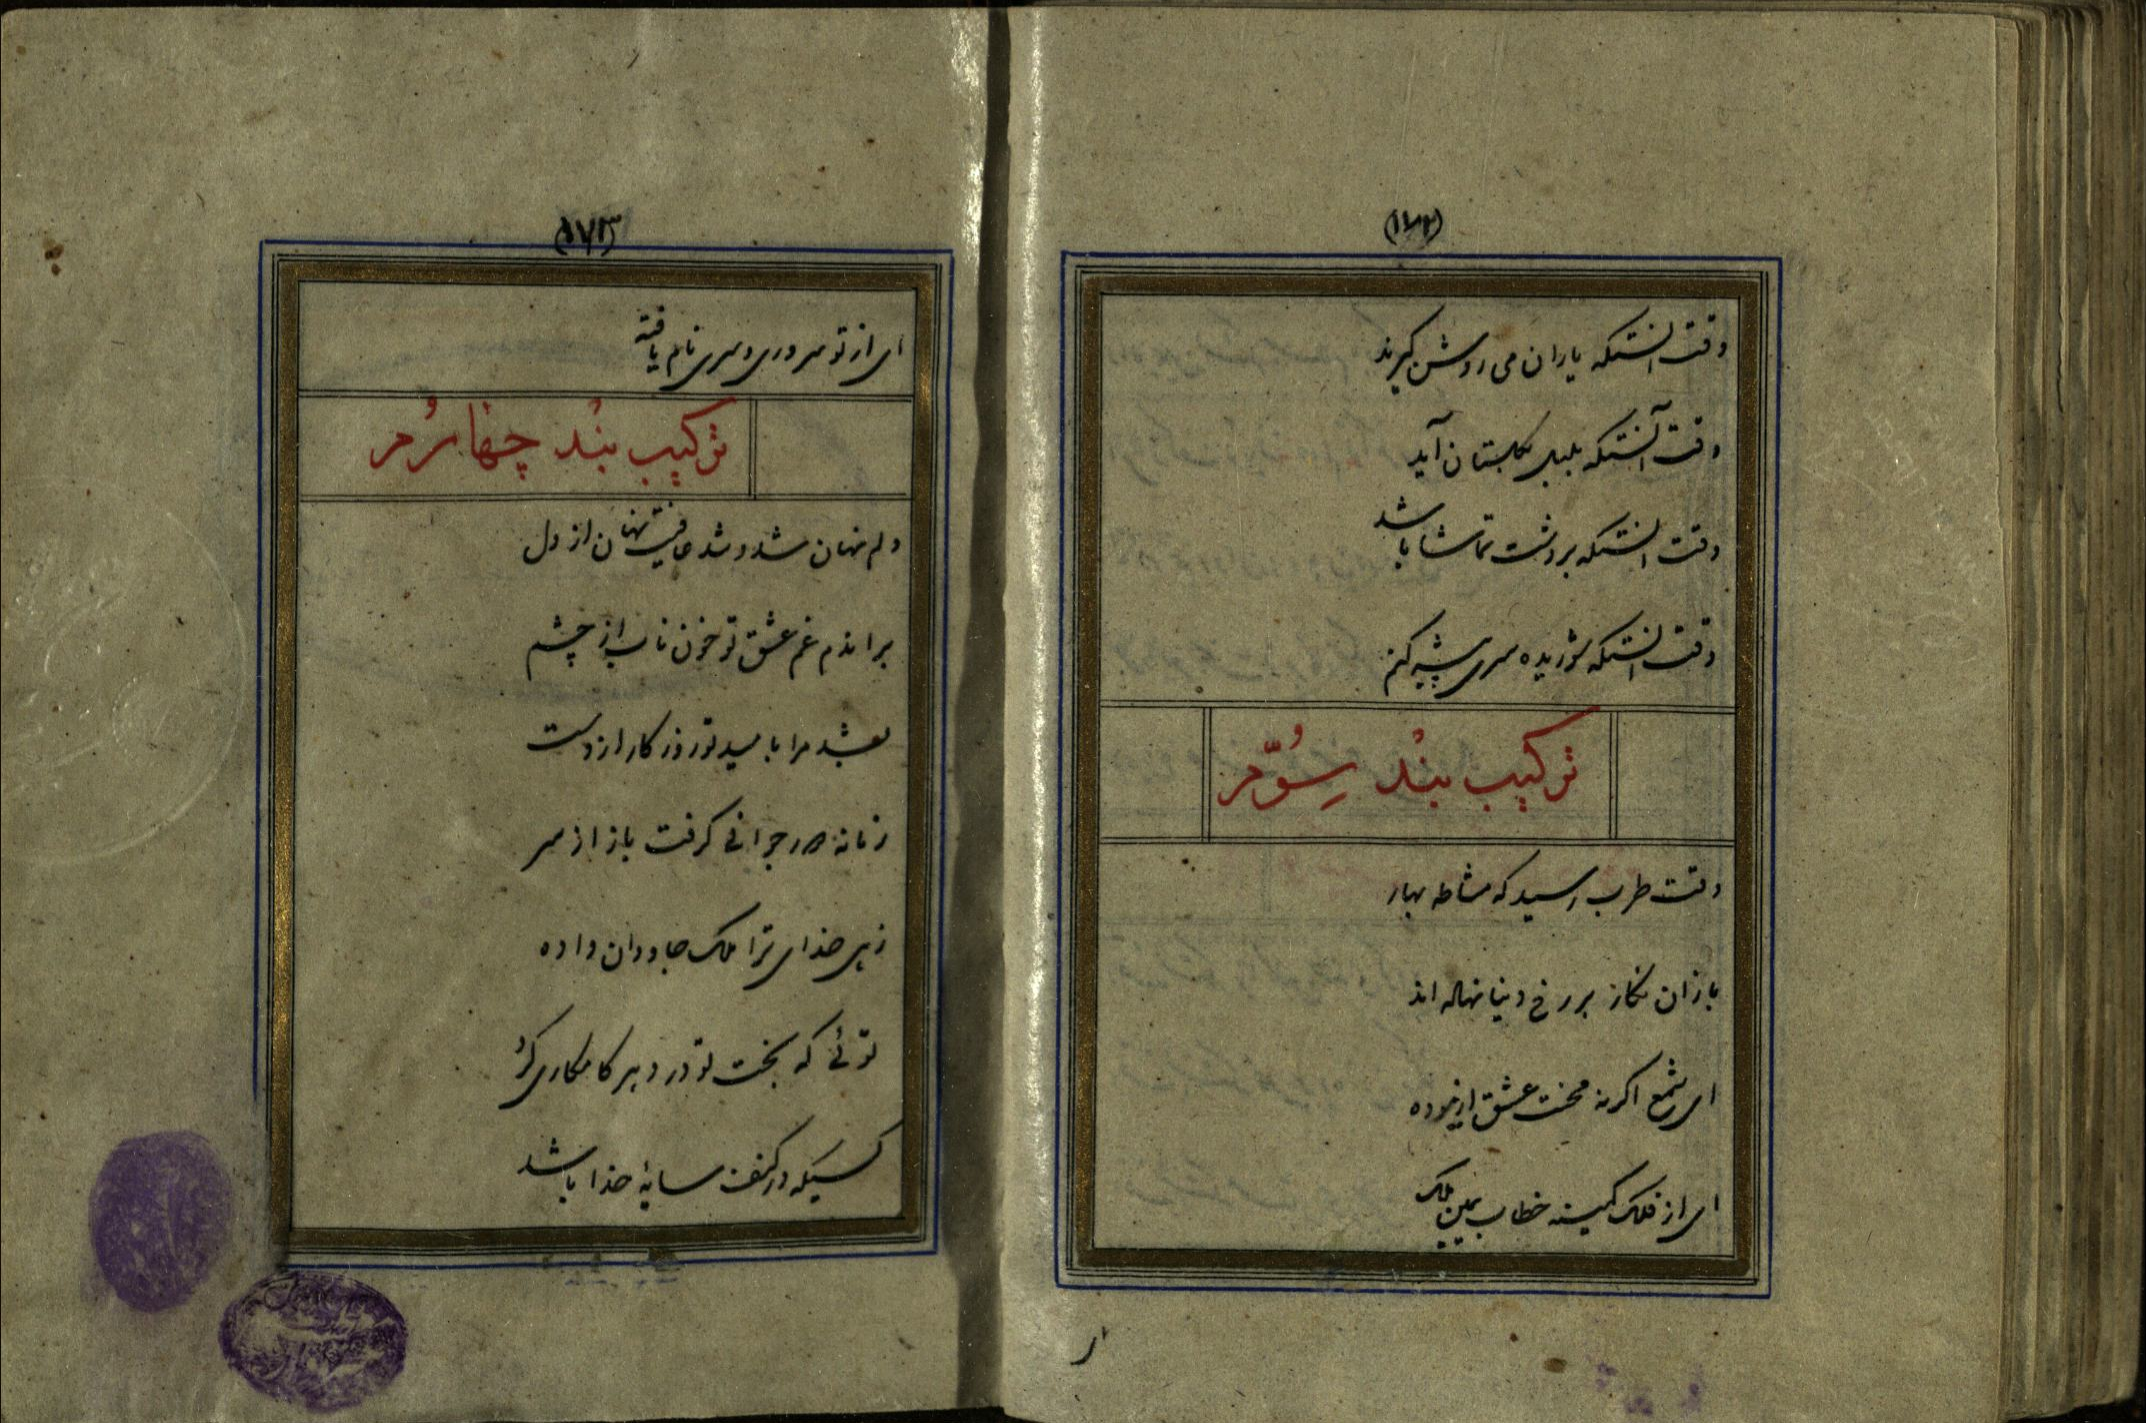 (۱۷۲)
وقت انستکه یاران می روشن گیرند
وقت آنستکه بلبل بگلستان آید
وقت انستکه بر دشت تماشا باشد
وقت انستکه شوریده سری پیشه کنم
ترکیب بند سوّم
وقت طرب رسید که مشاطه بهار
بازان نگار بر رخ دنیا نهاله اند
ای شمع اگر نه محنت عشق ازموده
ای از فلک کمینه خطاب یمین ملک
ا ر
(۱۷۳)
ای از تو سروری و سری نام یافته
ترکیب بند چهارم
دلم نهان شد و شد عافیت نهان از دل
براندم غم عشق تو خون ناب از چشم
بشد مرا بامید تو روزگار از دست
زمانه در جوانی گرفت باز از سر
زهی خدای ترا ملک جاودان داده
توئی که بخت تو در دهر کامکاری کرد
کسیکه در کنف سایهٔ خدا باشد